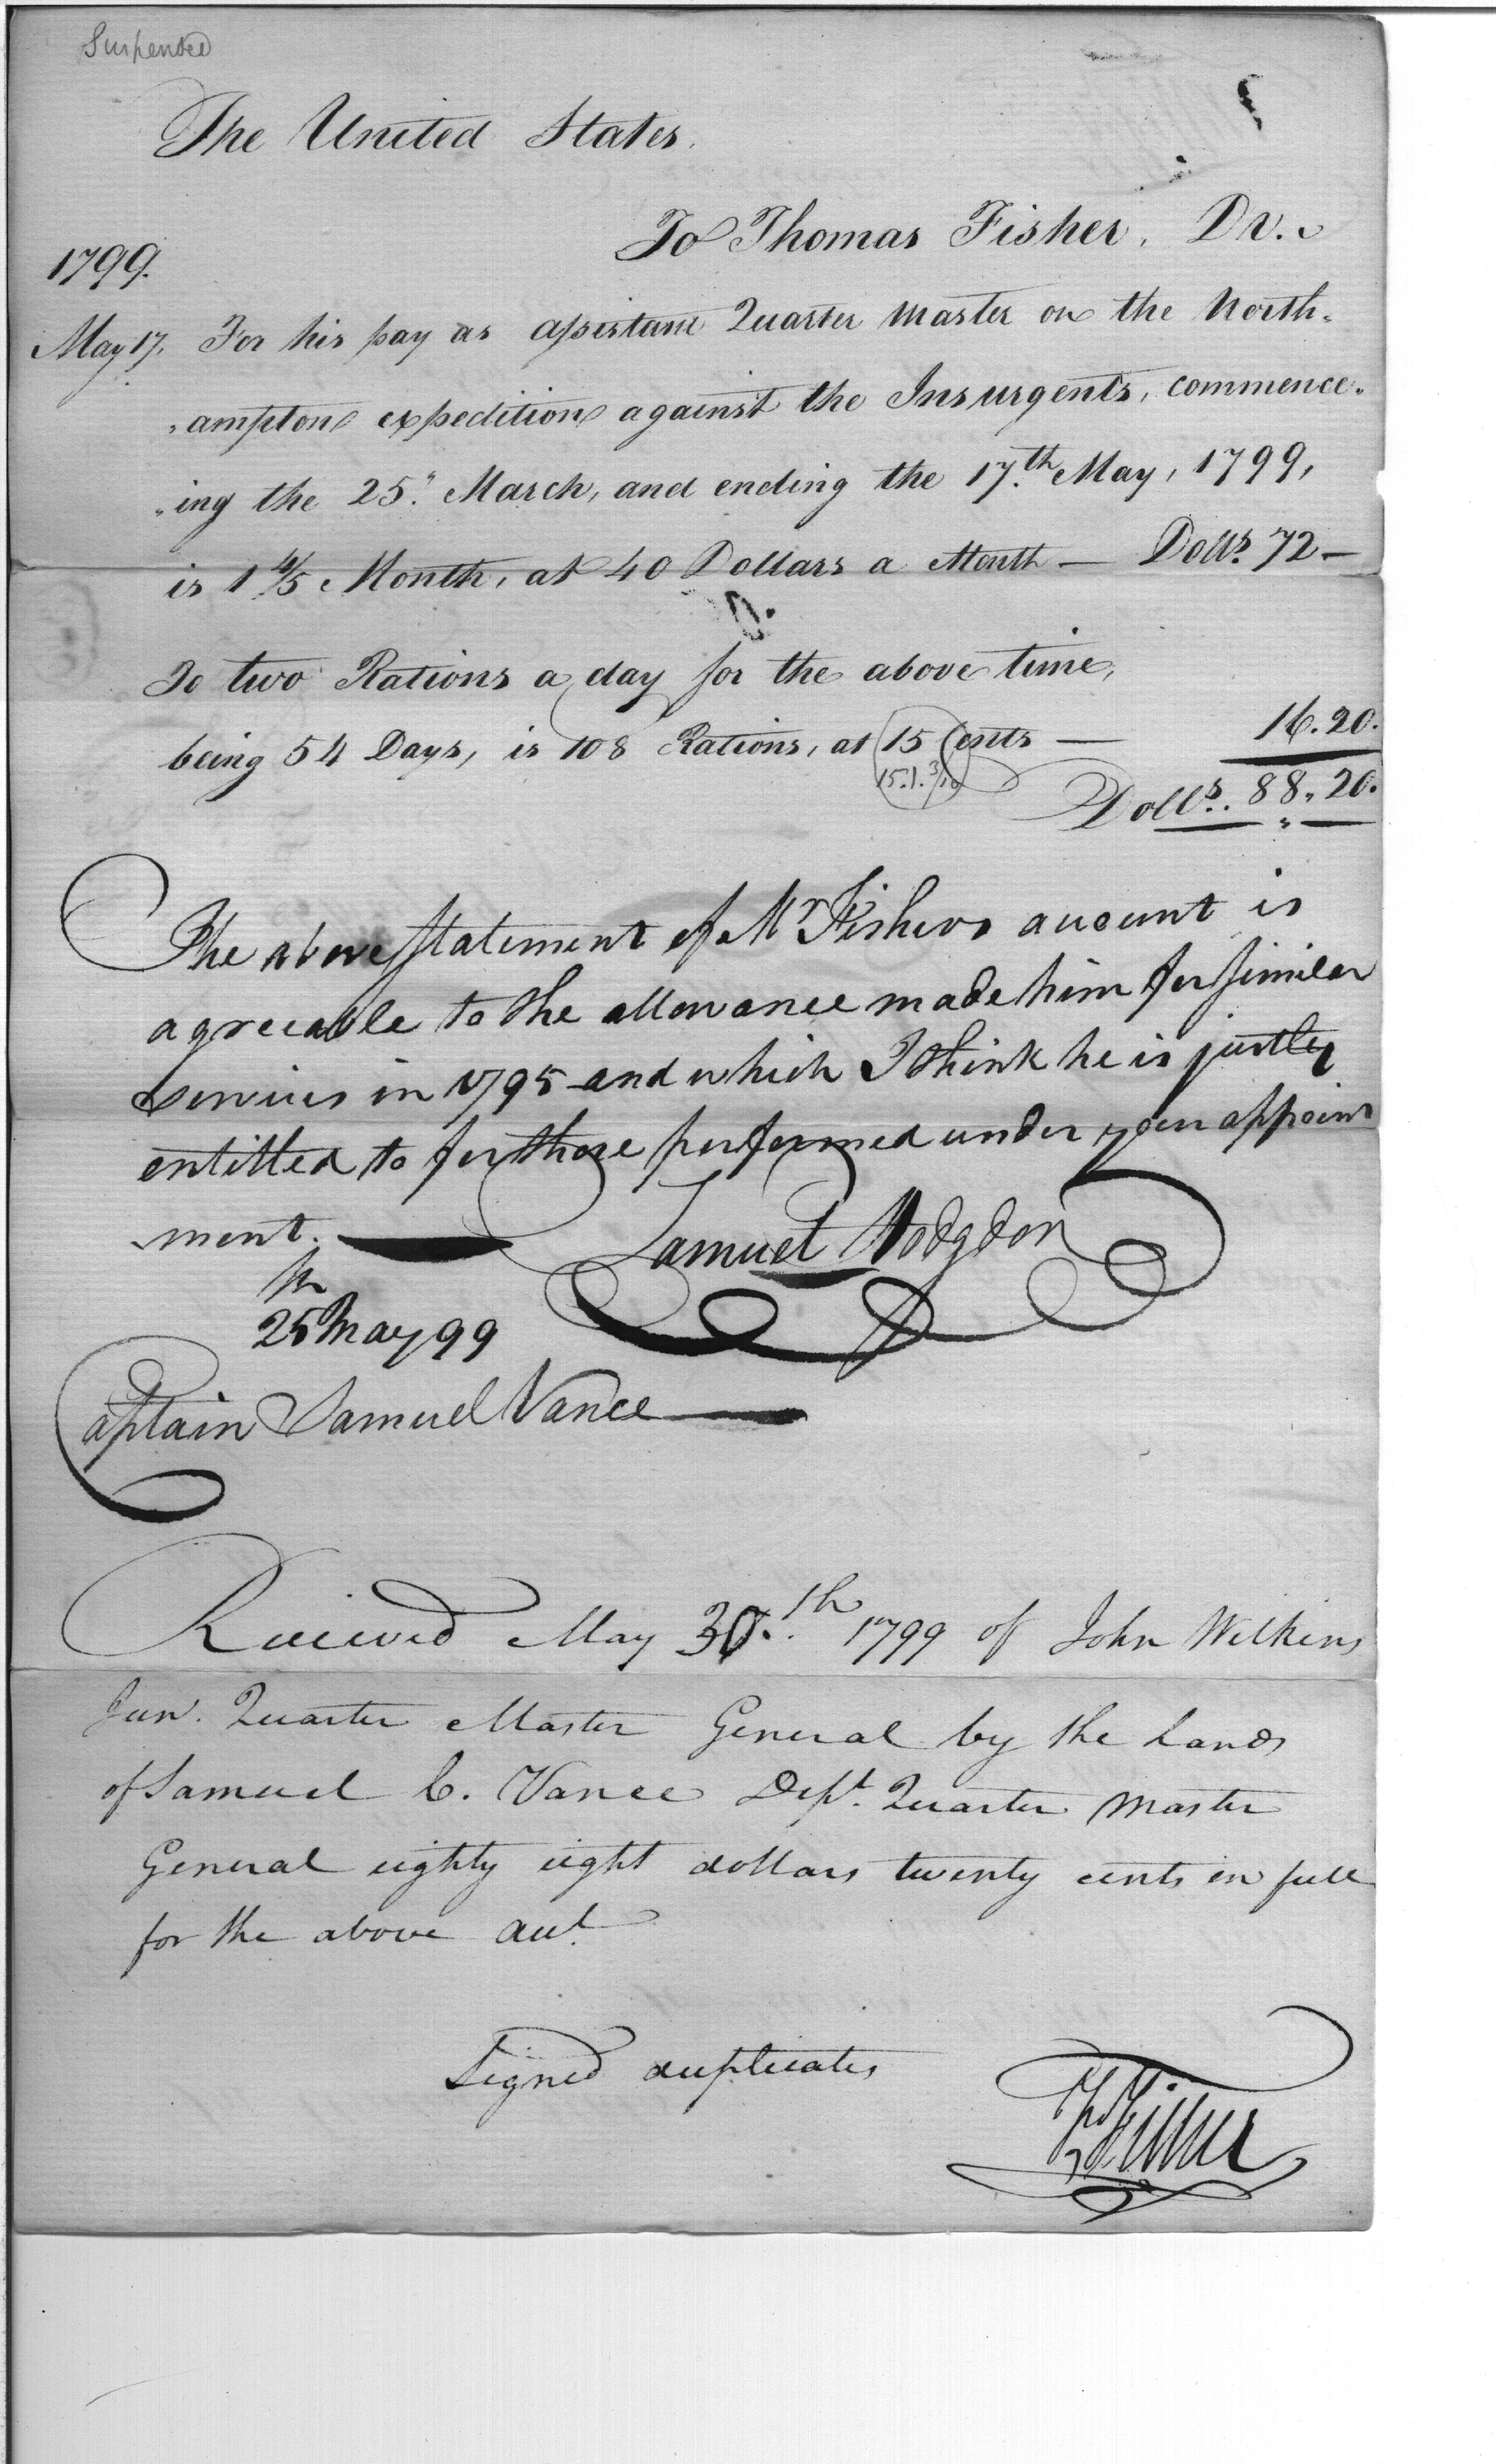 Suspended
The United States.
To Thomas Fisher, Dr.
1799.
May 17. For his pay as assistant Quarter Master on the North-
ampton expedition against the Insurgents, commence-
ing the 25th March, and ending the 17th May, 1799,
is 1 4/5 Month, at 40 Dollars a Month — Dolls. 72 —
To two Rations a day for the above time,
being 54 Days, is 108 Rations, at 15 Cents — 16.20.
15.1.3/10
Dolls. 88.20.
The above statement of Mr Fishers account is
agreeable to the allowance made him for similar
services in 1795 and which I think he is justly
entitled to for those performed under your appoint
ment. — Samuel Hodgdon
25 May 99
Captain Samuel Vance —
Received May 30th 1799 of John Wilkins
Junr. Quarter Master General by the hands
of Samuel C. Vance Dept. Quarter Master
General eighty eight dollars twenty cents in full
for the above acct.
Signed duplicates
Th Fisher